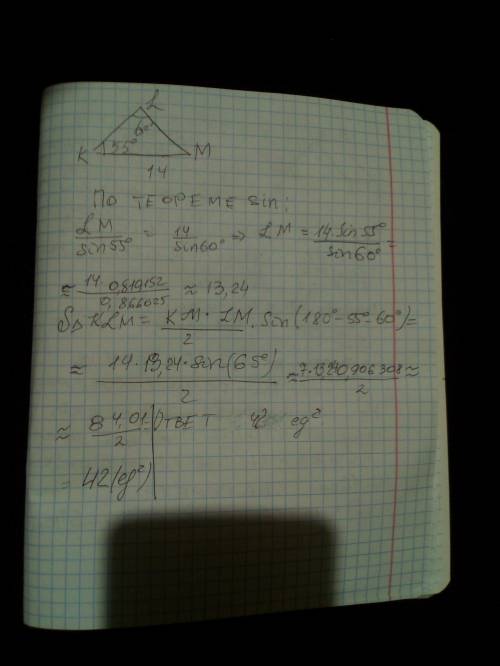 L
60°
K 55° M
14
По ТЕОРЕМЕ sin:
LM/sin55° = 14/sin60° => LM = 14·sin55°/sin60° =
≈ 14·0,819152/0,866025 ≈ 13,24
S△KLM = KM·LM/2 · sin(180°-55°-60°) =
≈ 14·13,24·sin(65°)/2 ≈ 7·13,24·0,906308/2 ≈
≈ 84,01/2 ОТВЕТ 42 ед²
= 42(ед²)